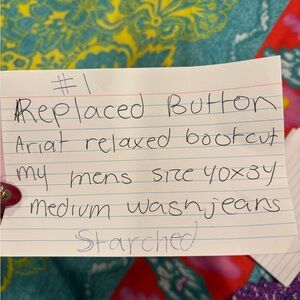 #1
Replaced Button
Ariat relaxed bootcut
my mens size 40x34
medium wash jeans
Starched